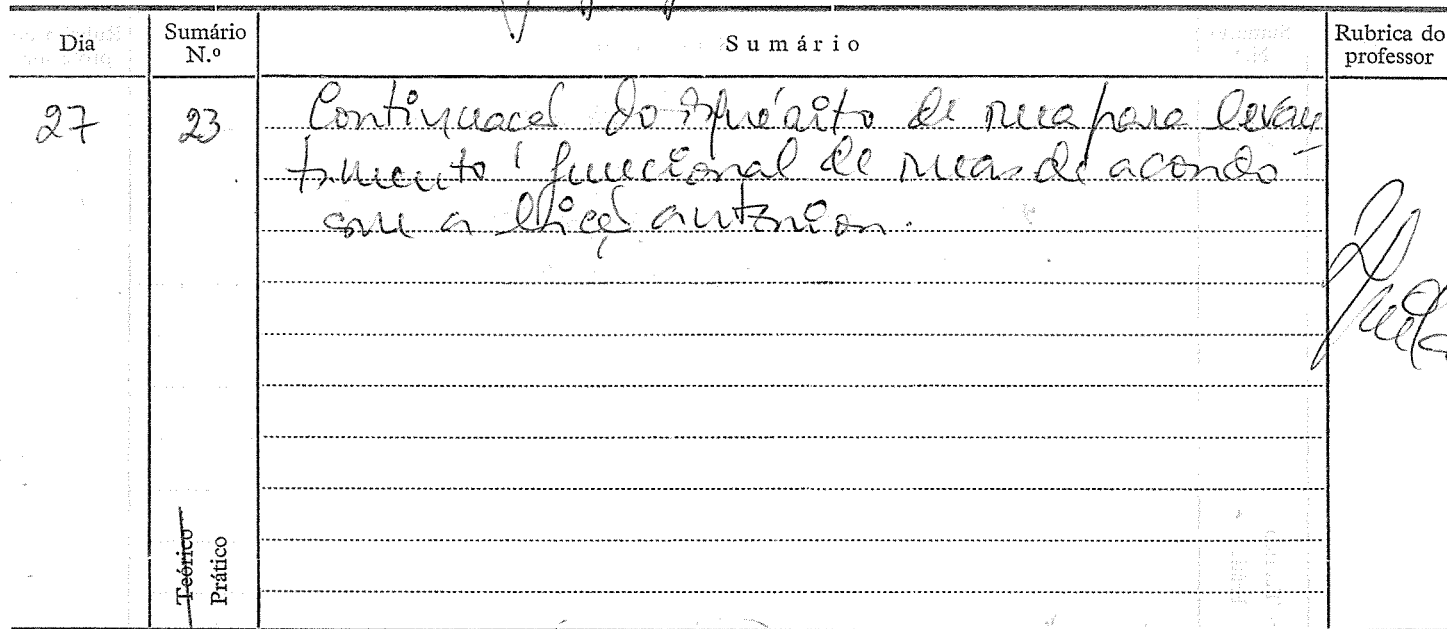 Dia Sumário N.º Sumário Rubrica do professor
27 23 Continuação do inquérito de rua para levan
tamento funcional de ruas de acordo
com a lição anterior.
Teórico
Prático